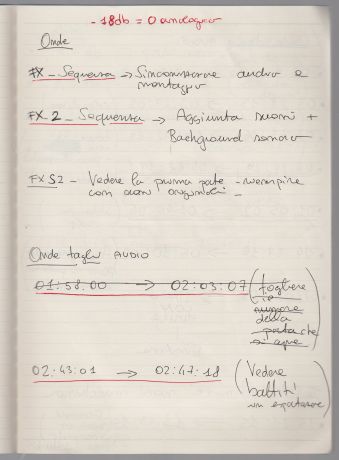 - 18db = 0 analogico
Onde
FX - Sequenza → Sincronizzare audio e
montaggio
FX 2 - Sequenza → Aggiunta suoni +
Background sonoro
FX S2 - Vedere la prima parte - riempire
con suoni
Onde tagli AUDIO
01:58:00 → 02:03:07 (togliere
il
rumore
della
porta che
si apre
02:43:01 → 02:47:18 (Vedere
battiti
)